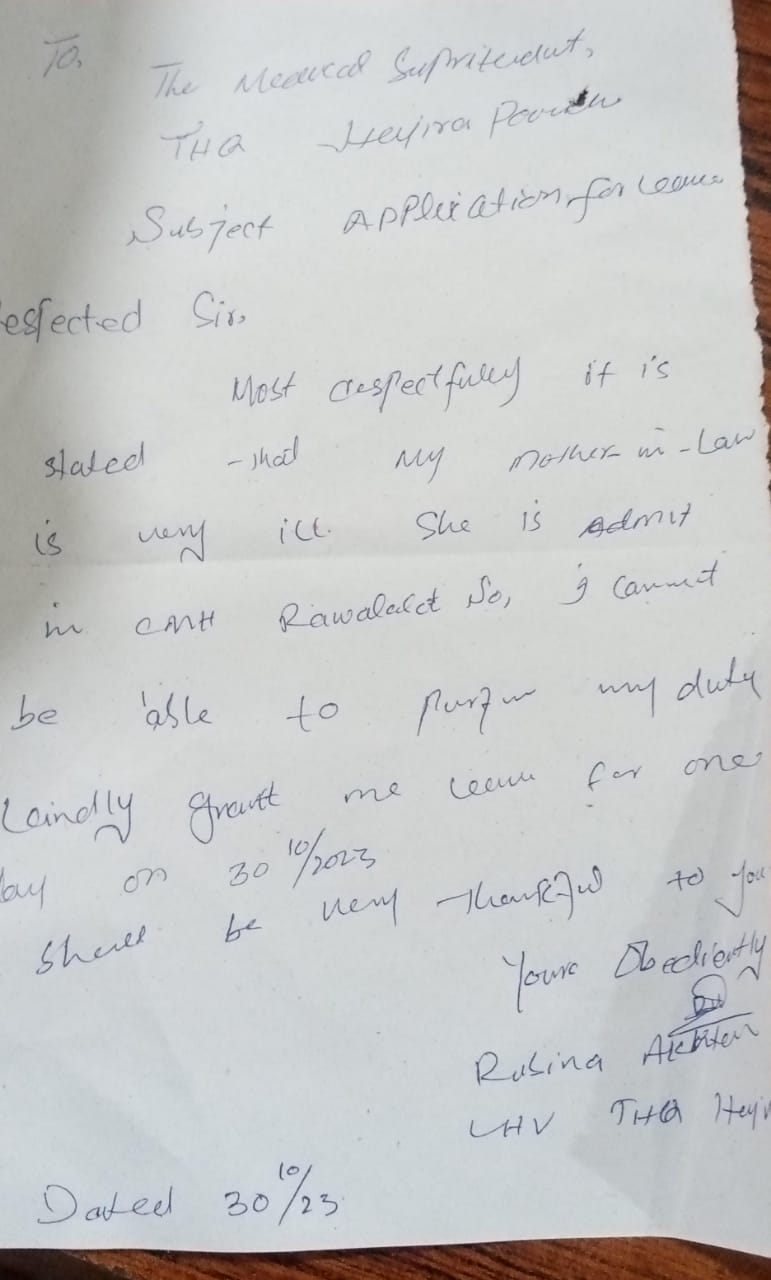 To,
The Medical Supritendut,
THQ Hejira
Subject Application for leave
espected Sir,
Most respectfully it is
stated that my mother in-Law
is very ill. She is Admit
in CMH Rawalakot So, I cannot
be able to my duty
kindly grant me leave for one
day on 30 10/2023
shall be very thankful to you
Yours Obediently
Rubina Akhter
LHV THQ Heji
Dated 30 10/23